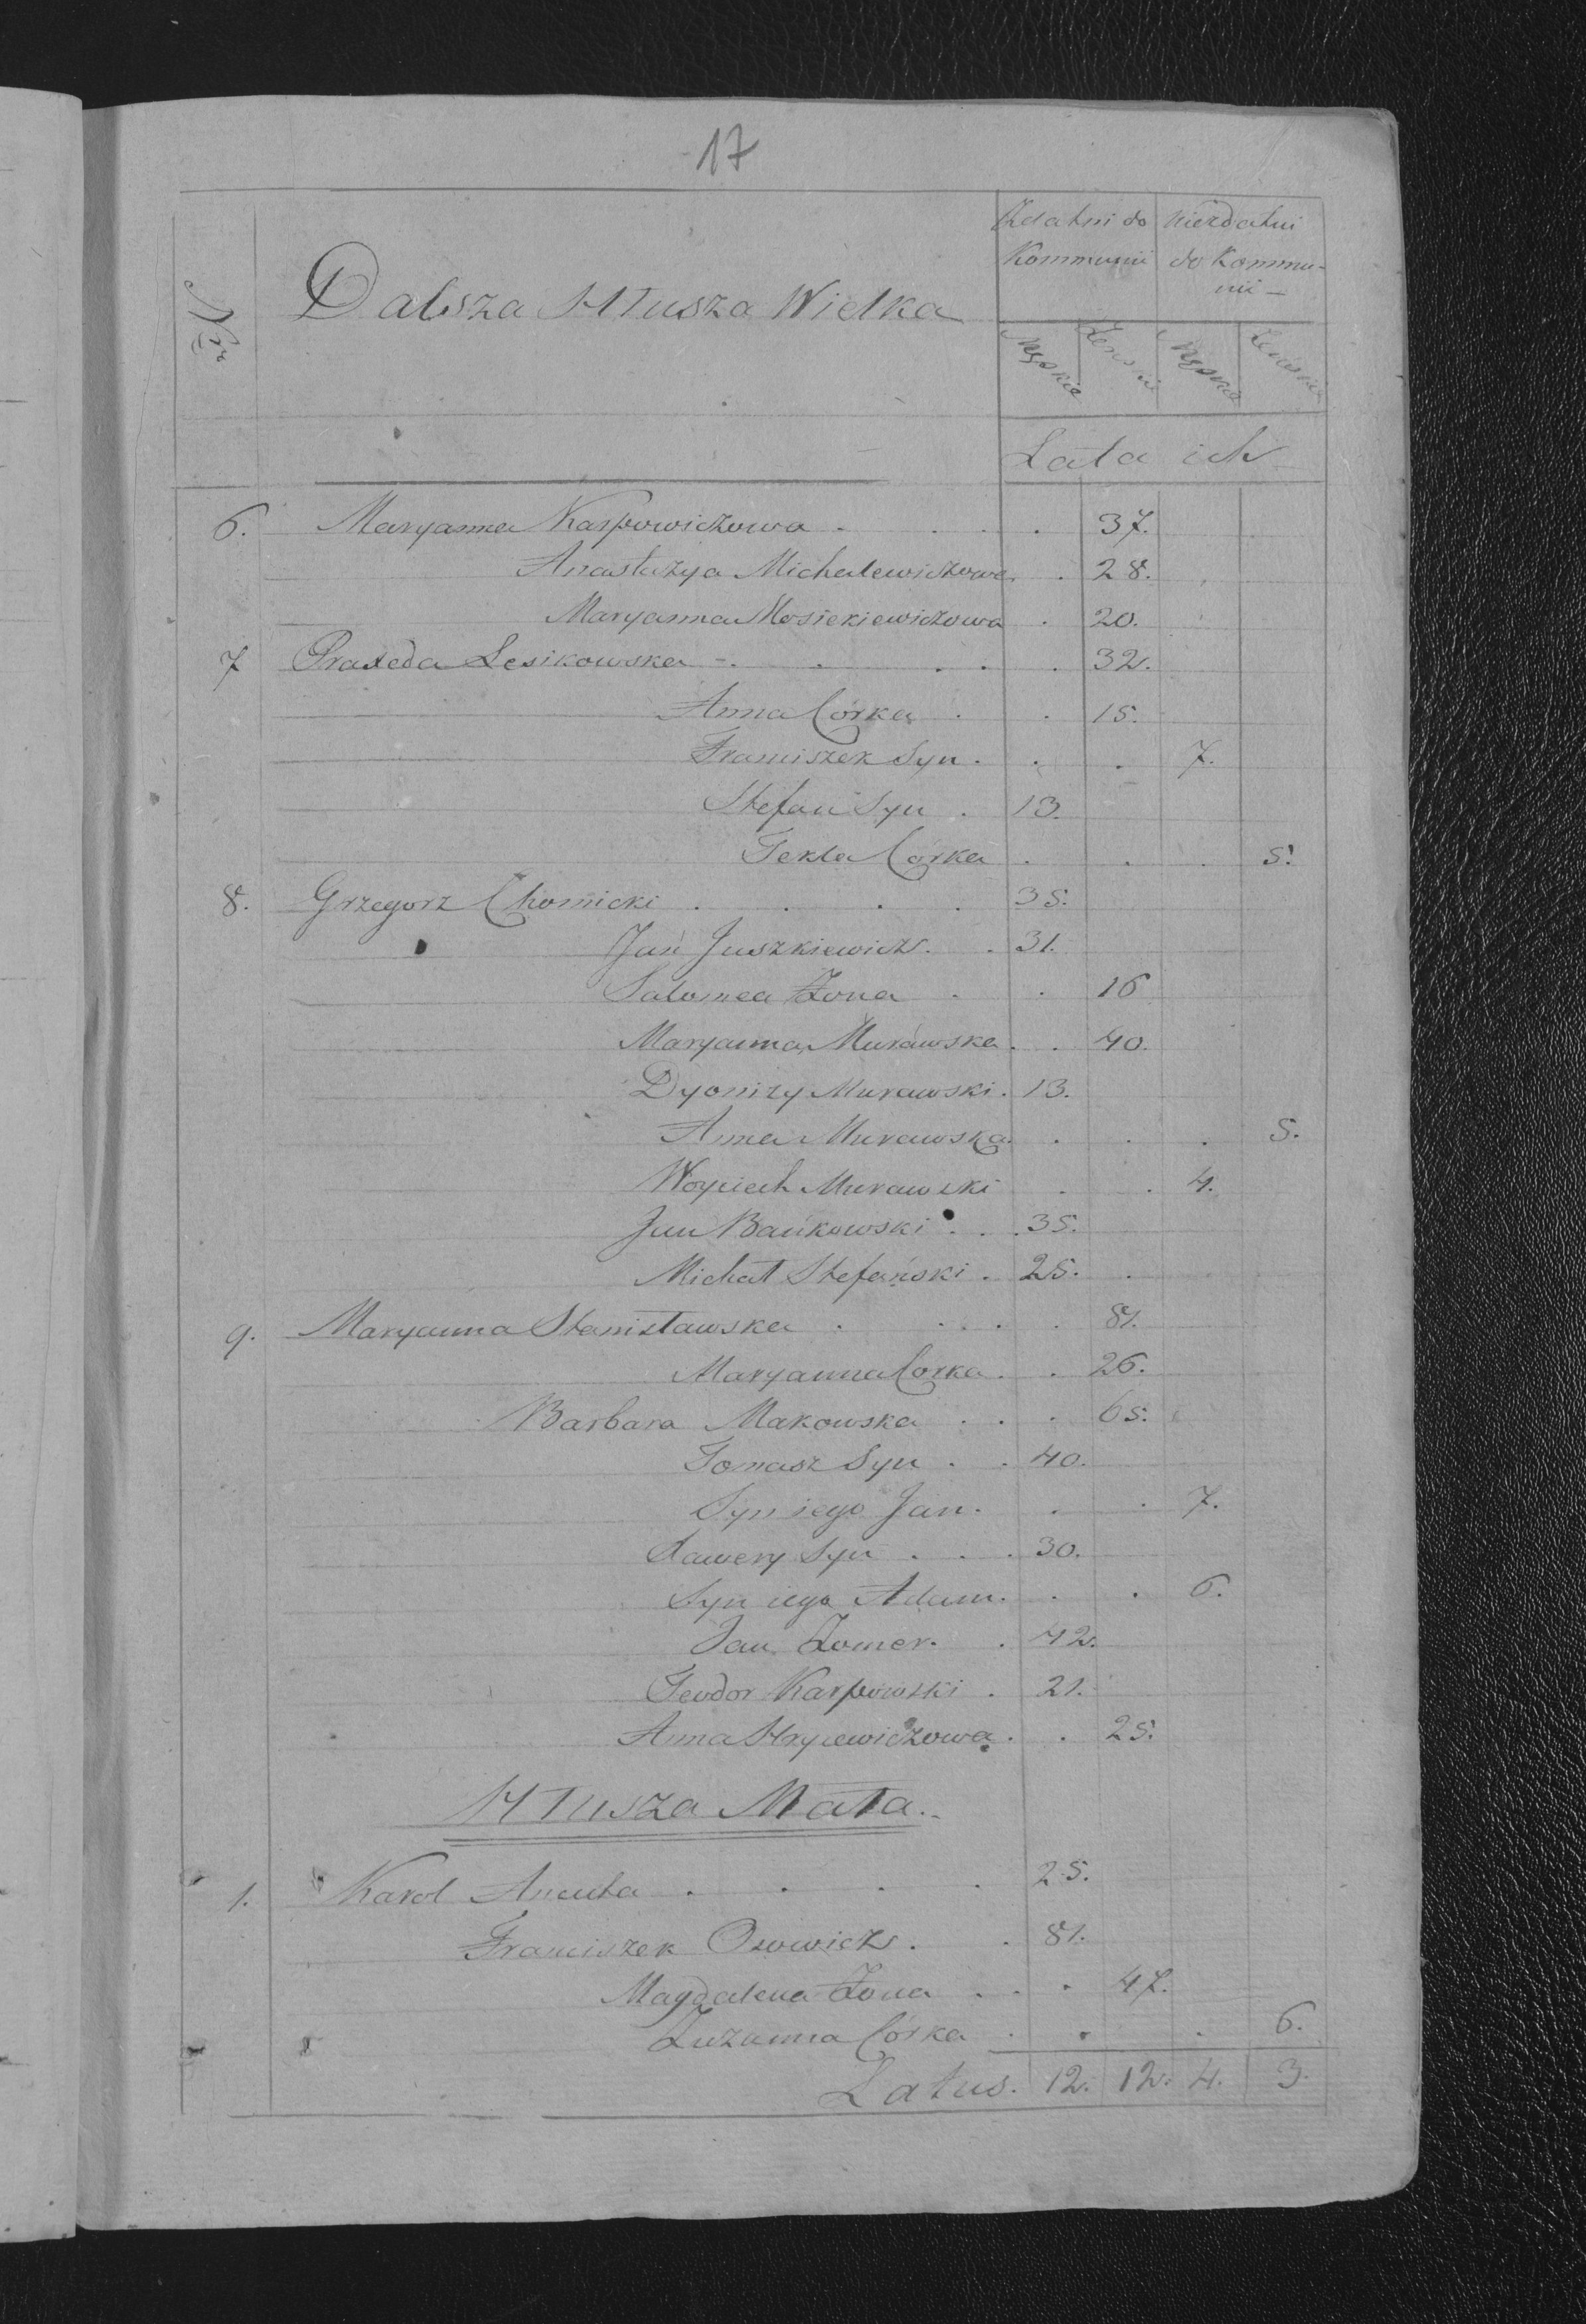 17
Nro
Dalsza Hłusza Wielka
Zdatni do Kommunii
niezdatni do Kommunii –
Męskie Żeńskie Męskie Żeńskie
Lata ich
6. Maryanna Karpowiczowa . . . . 37.
Anastazya Michalewiczowa . . 28.
Maryanna Mosiekiewiczowa . 20.
7 Praxeda Lesikowska - . . . . . 32.
Anna Córka . . 15.
Franciszek Syn . . . 7.
Stefan Syn . 13.
Tekla Córka . . . 5.
8. Grzegorz Chomicki . . . . 35.
Jan Juszkiewicz . . 31.
Salomea Żona . . 16
Maryanna Murawska . . 40.
Dyonizy Murawski . 13.
Anna Murawska . . . 5.
Woyciech Murawski . . 4.
Jan Bańkowski . . . 35.
Michał Stefański . 25. .
9. Maryanna Stanisławska . . . . . 81.
Maryanna Corka . . 26.
Barbara Makowska . . . 65.
Tomasz Syn . . 40.
Syn iego Jan . . . 7.
Xawery Syn . . . 30.
Syn iego Adam . . . 6.
Jan Zomer . . 42.
Teodor Karpowski . 21.
Anna Hrycewiczowa . . 25.
Hłusza Mała..
1. Karol Ancuta . . . . 25.
Franciszek Osowicz . . 81.
Magdalena Żona . . . 47.
Zuzanna Corka . . . 6.
Latus. 12. 12. 4. 3.